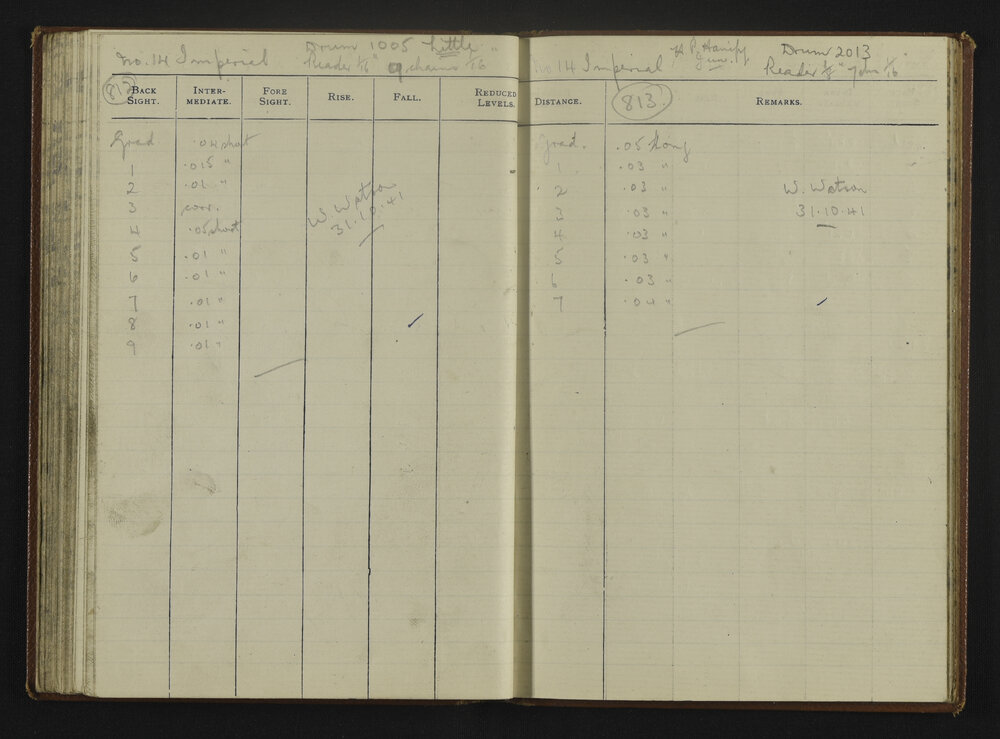 No. 14 Imperial Drum 1005 Little "
Reader 1/16" 9 chains 1/16
812
BACK SIGHT. INTER-MEDIATE. FORE SIGHT. RISE. FALL. REDUCED LEVELS.
Grad .04 short
1 .015 "
2 .01 "
3 corr.
4 .05 short
5 .01 "
6 .01 "
7 .01 "
8 .01 "
9 .01 "
W. Watson
31.10.41
No 14 Imperial Jun. Drum 2013
Reader
DISTANCE. 813 REMARKS.
Grad. .05 long
1 .03 "
2 .03 " W. Watson
3 .03 " 31.10.41
4 .03 "
5 .03 "
6 .03 "
7 .04 "